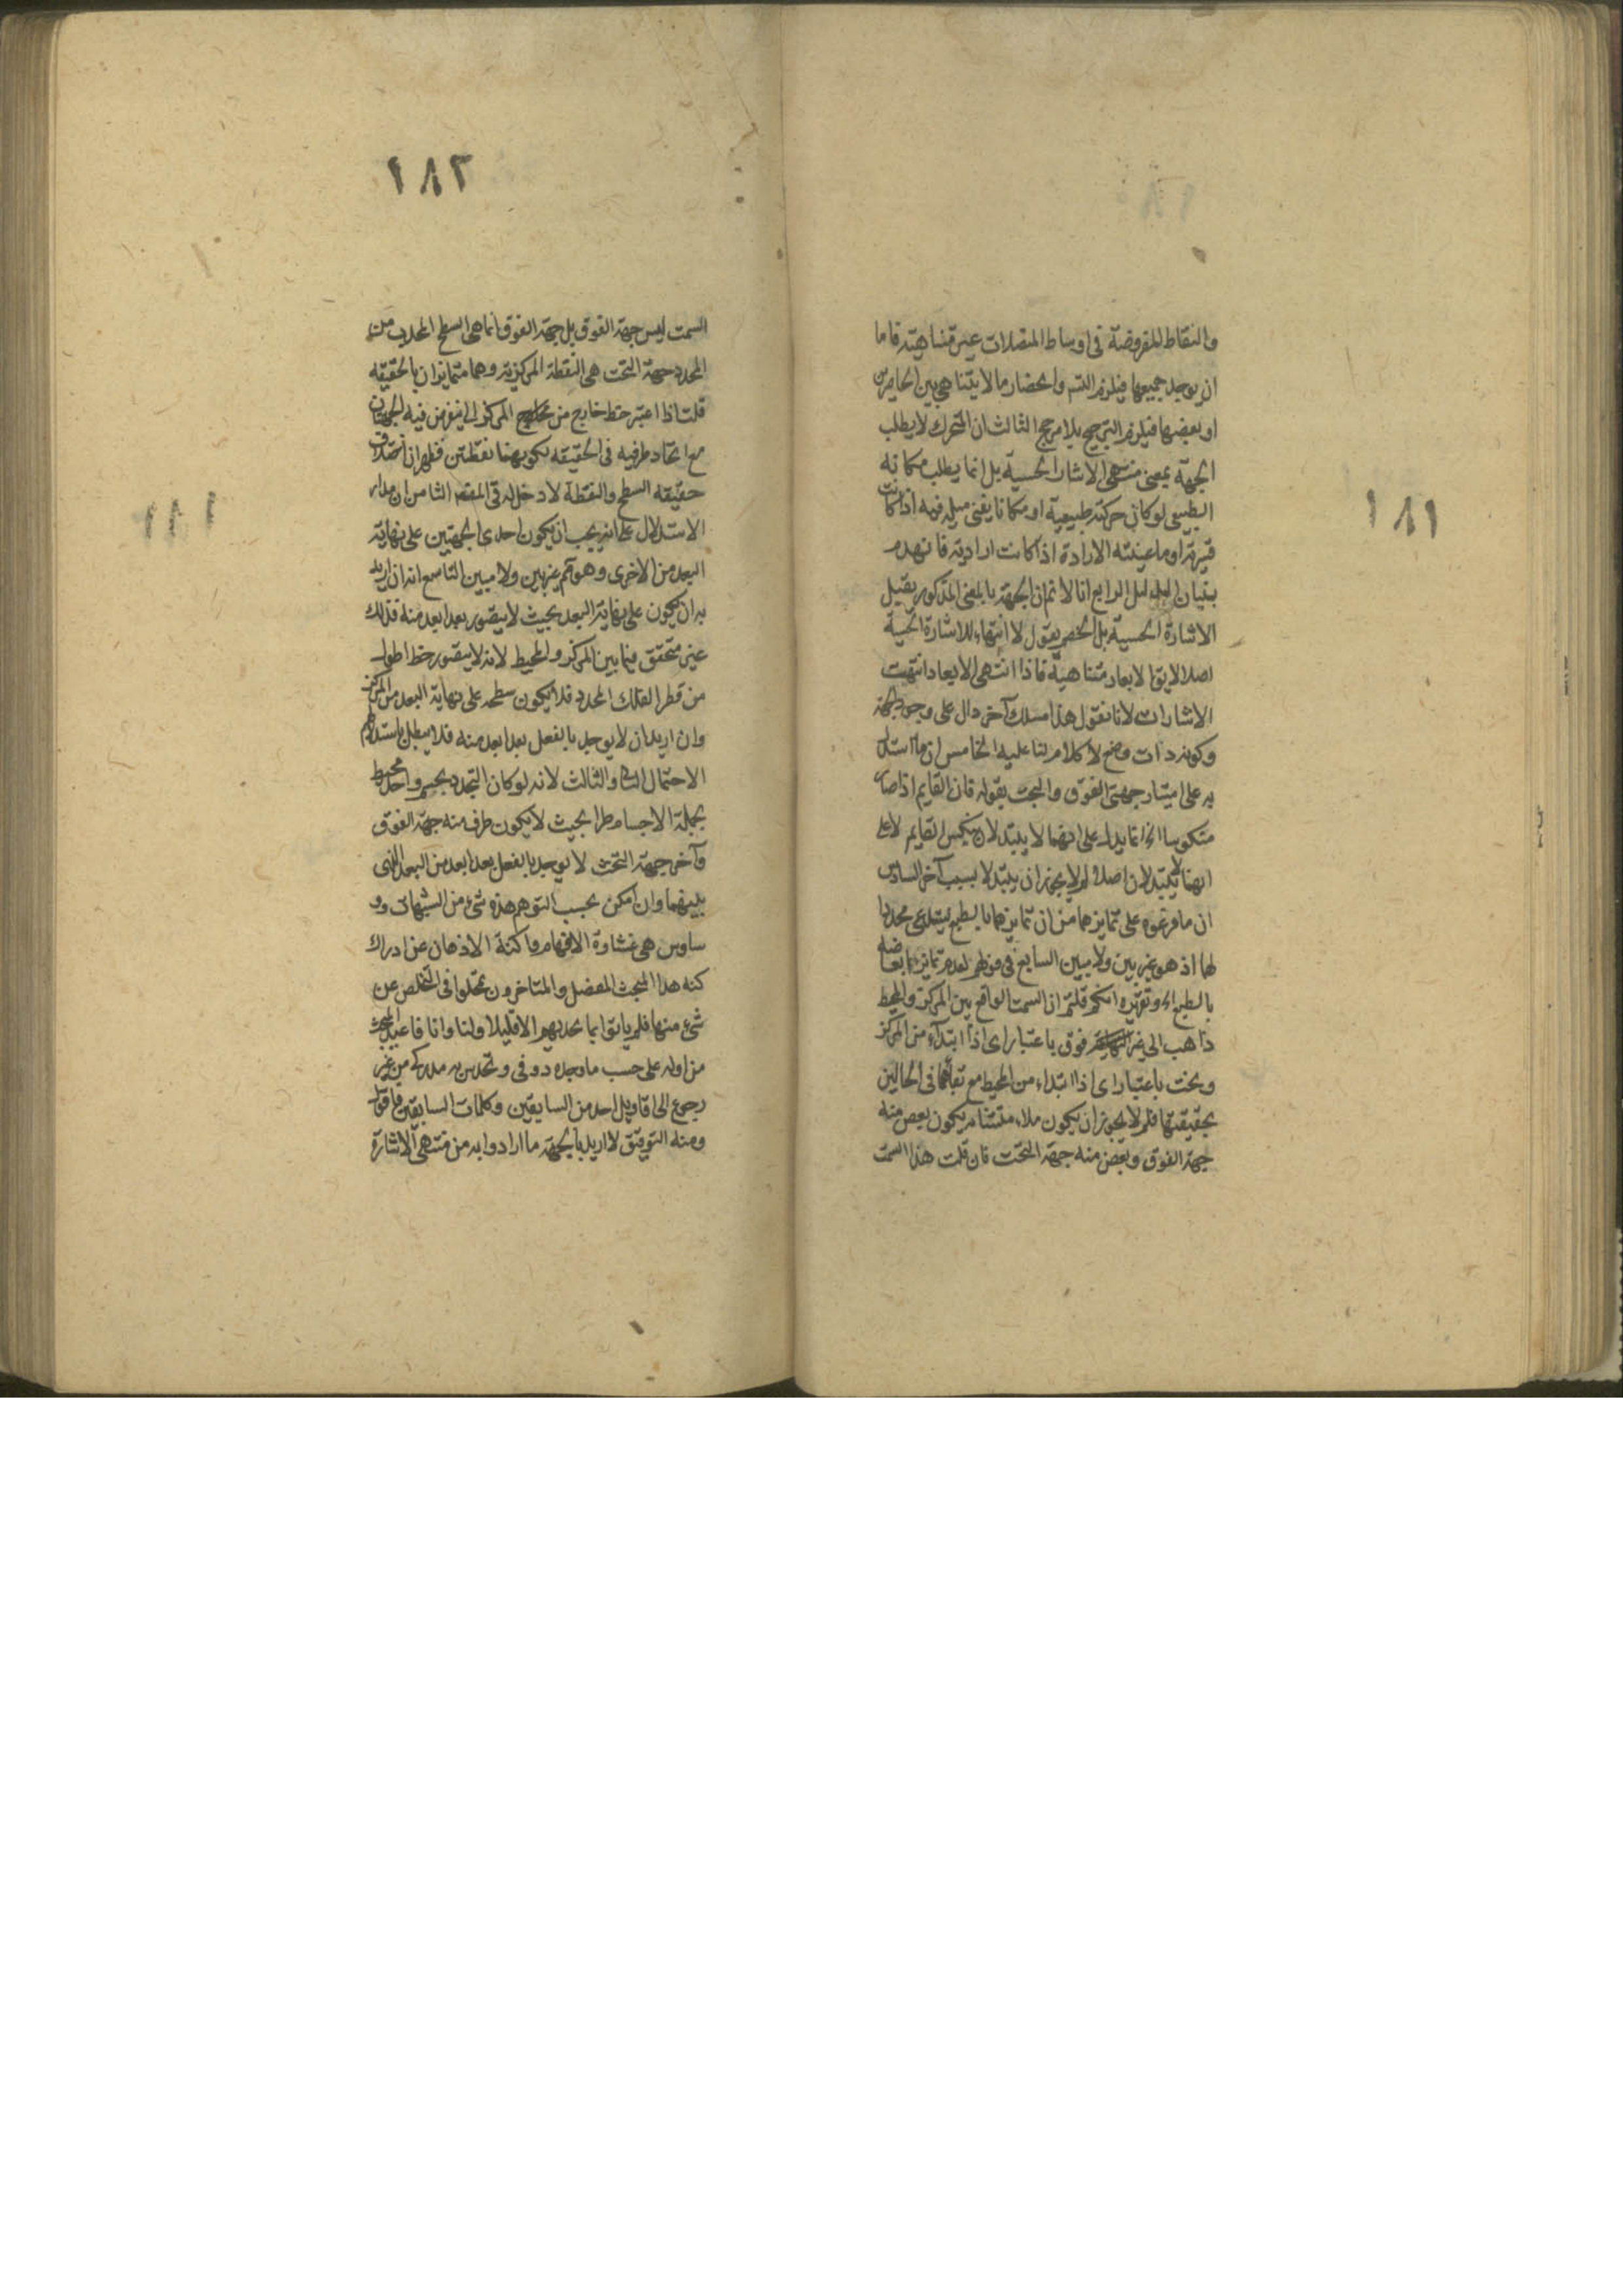 ١٨١
والنقاط المفروضة فى اوساط المتصلات غير متناهية فاما
ان يوجد جميعها فيلزم التسـ وانحصار ما لا يتناهى بين الحاصرين
او بعضها فيلزم الترجيح بلا مرجح الثالث ان المتحرك لا يطلب
الجهة بمعنى منتهى الاشارة الحسية بل انما يطلب مكانه
الطبيعى لو كان حركته طبيعية او مكانا يقتضى ميله اذا كانت
قسرية او ما عينته الارادة اذا كانت ارادية فانهدم
بنيان الدليل الرابع انا لا نم ان الجهة بالمعنى المذكور يقبل
الاشارة الحسية بل الخصم يقول لا انتهاء للاشارة الحسية
اصلا لا يق الابعاد متناهية فاذا انتهى الابعاد انتهت
الاشارات لانا نقول هذا مسلك آخر دال على وجود الجهة
وكونه ذات وضع لا كلام لنا عليه الخامس ان ما استدل
به على امتياز جهتى الفوق والتحت بقوله فان القايم اذا صار
منكوسا الخ انما يدل على انهما لا يتبدلان بنكس القايم لا على
انهما لا يتبدلان اصلا لم لا يجوز ان يتبدلا بسبب آخر السادس
ان ما فرعوه على تمايزهما من ان تمايزهما بالطبع يستدعى محددا
لهما اذ هو غير بين ولا مبين السابع فى قولهم لعدم تمايز ابعاضه
بالطبع اه وتقريره انكم قلتم ان السمت الواقع بين المركز والمحيط
ذاهب الى غير النهاية فوق باعتبار اى اذا ابتدآء من المركز
وتحت باعتبار اى اذا ابتداء من المحيط مع بقائهما فى الحالين
بحقيقتها فلم لا يجوز ان يكون ملاء متشابه يكون بعض منه
جهة الفوق وبعض منه جهة التحت فان قلت هذا السمت
١٨٢
السمت ليس جهة الفوق بل جهة الفوق انما هى السطح المحدب من
المحدد جهة التحت هى النقطة المركزية وهما متمايزان بالحقيقه
قلت اذا اعتبر خط خارج من المركز الى يفرض فيه الجهتان
مع اتحاد طرفيه فى الحقيقه بكونهما نقطتين فظهر ان اختلاف
حقيقه السطح والنقطة لا دخل له فى المقصـ الثامن ان مدار
الاستدلال على انه يجب ان يكون احدى الجهتين على نهاية
البعد من الاخرى وهو نم غير بين ولا مبين التاسع انه ان اريد
به ان يكون على نهاية البعد بحيث لا يتصور بعدا بعد منه فذلك
غير متحقق فيما بين المركز والمحيط لانه لا يتصور خط اطول
من قطر الفلك المحدد فلا يكون سطحه على نهاية البعد من المركز
وان اريد ان لا يوجد بالفعل بعدا بعد منه فلا يبطل باستدلالهم
الاحتمال الثانى والثالث لانه لو كان التحدد بجسم واحد محيط
بجملة الاجسام طرا بحيث لا يكون طرف منه جهة الفوق
وآخر جهة التحت لا يوجد بالفعل بعدا بعد من البعد الذى
بينهما وان امكن بحسب التوهم هذه شىء من الشبهات وو
ساوس هى غشاوة الافهام واكنة الاذهان عن ادراك
كنه هذا المبحث المعضل والمتاخرون تمحلوا فى التخلص عن
شىء منها فلم ياتوا بما يجديهم الا قليلا ولنا وانا فاعيد البحث
من اوله على حسب ما وجده ذوقى وتحدس به مداركى من غير
رجوع الى اقاويل احد من السابقين وكلمات السابقين فاقول
ومنه التوفيق لا اريد بالجهة ما ارادوا به من منتهى الاشارة
١٨١